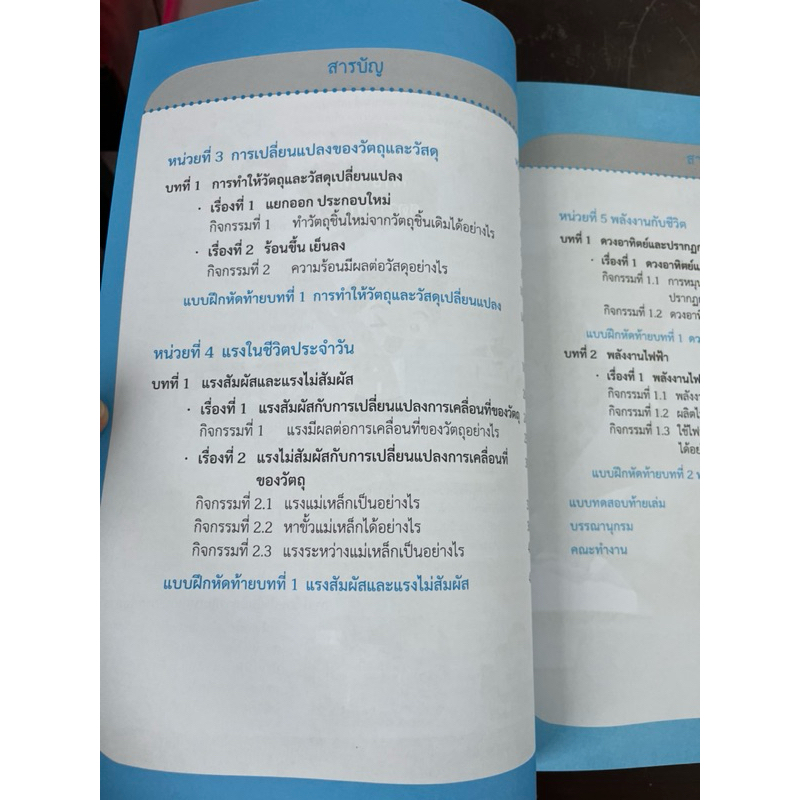 สารบัญ
หน่วยที่ 3 การเปลี่ยนแปลงของวัตถุและวัสดุ
บทที่ 1 การทำให้วัตถุและวัสดุเปลี่ยนแปลง
· เรื่องที่ 1 แยกออก ประกอบใหม่
กิจกรรมที่ 1 ทำวัตถุชิ้นใหม่จากวัตถุชิ้นเดิมได้อย่างไร
· เรื่องที่ 2 ร้อนขึ้น เย็นลง
กิจกรรมที่ 2 ความร้อนมีผลต่อวัสดุอย่างไร
แบบฝึกหัดท้ายบทที่ 1 การทำให้วัตถุและวัสดุเปลี่ยนแปลง
หน่วยที่ 4 แรงในชีวิตประจำวัน
บทที่ 1 แรงสัมผัสและแรงไม่สัมผัส
· เรื่องที่ 1 แรงสัมผัสกับการเปลี่ยนแปลงการเคลื่อนที่ของวัตถุ
กิจกรรมที่ 1 แรงมีผลต่อการเคลื่อนที่ของวัตถุอย่างไร
· เรื่องที่ 2 แรงไม่สัมผัสกับการเปลี่ยนแปลงการเคลื่อนที่
ของวัตถุ
กิจกรรมที่ 2.1 แรงแม่เหล็กเป็นอย่างไร
กิจกรรมที่ 2.2 หาขั้วแม่เหล็กได้อย่างไร
กิจกรรมที่ 2.3 แรงระหว่างแม่เหล็กเป็นอย่างไร
แบบฝึกหัดท้ายบทที่ 1 แรงสัมผัสและแรงไม่สัมผัส
หน่วยที่ 5 พลังงานกับชีวิต
บทที่ 1 ดวงอาทิตย์และปรากฏ
· เรื่องที่ 1 ดวงอาทิตย์แ
กิจกรรมที่ 1.1 การหมุน
ปรากฏ
กิจกรรมที่ 1.2 ดวงอาทิ
แบบฝึกหัดท้ายบทที่ 1 ดว
บทที่ 2 พลังงานไฟฟ้า
· เรื่องที่ 1 พลังงานไฟ
กิจกรรมที่ 1.1 พลังงา
กิจกรรมที่ 1.2 ผลิตไ
กิจกรรมที่ 1.3 ใช้ไฟ
ได้อย
แบบฝึกหัดท้ายบทที่ 2 พ
แบบทดสอบท้ายเล่ม
บรรณานุกรม
คณะทำงาน